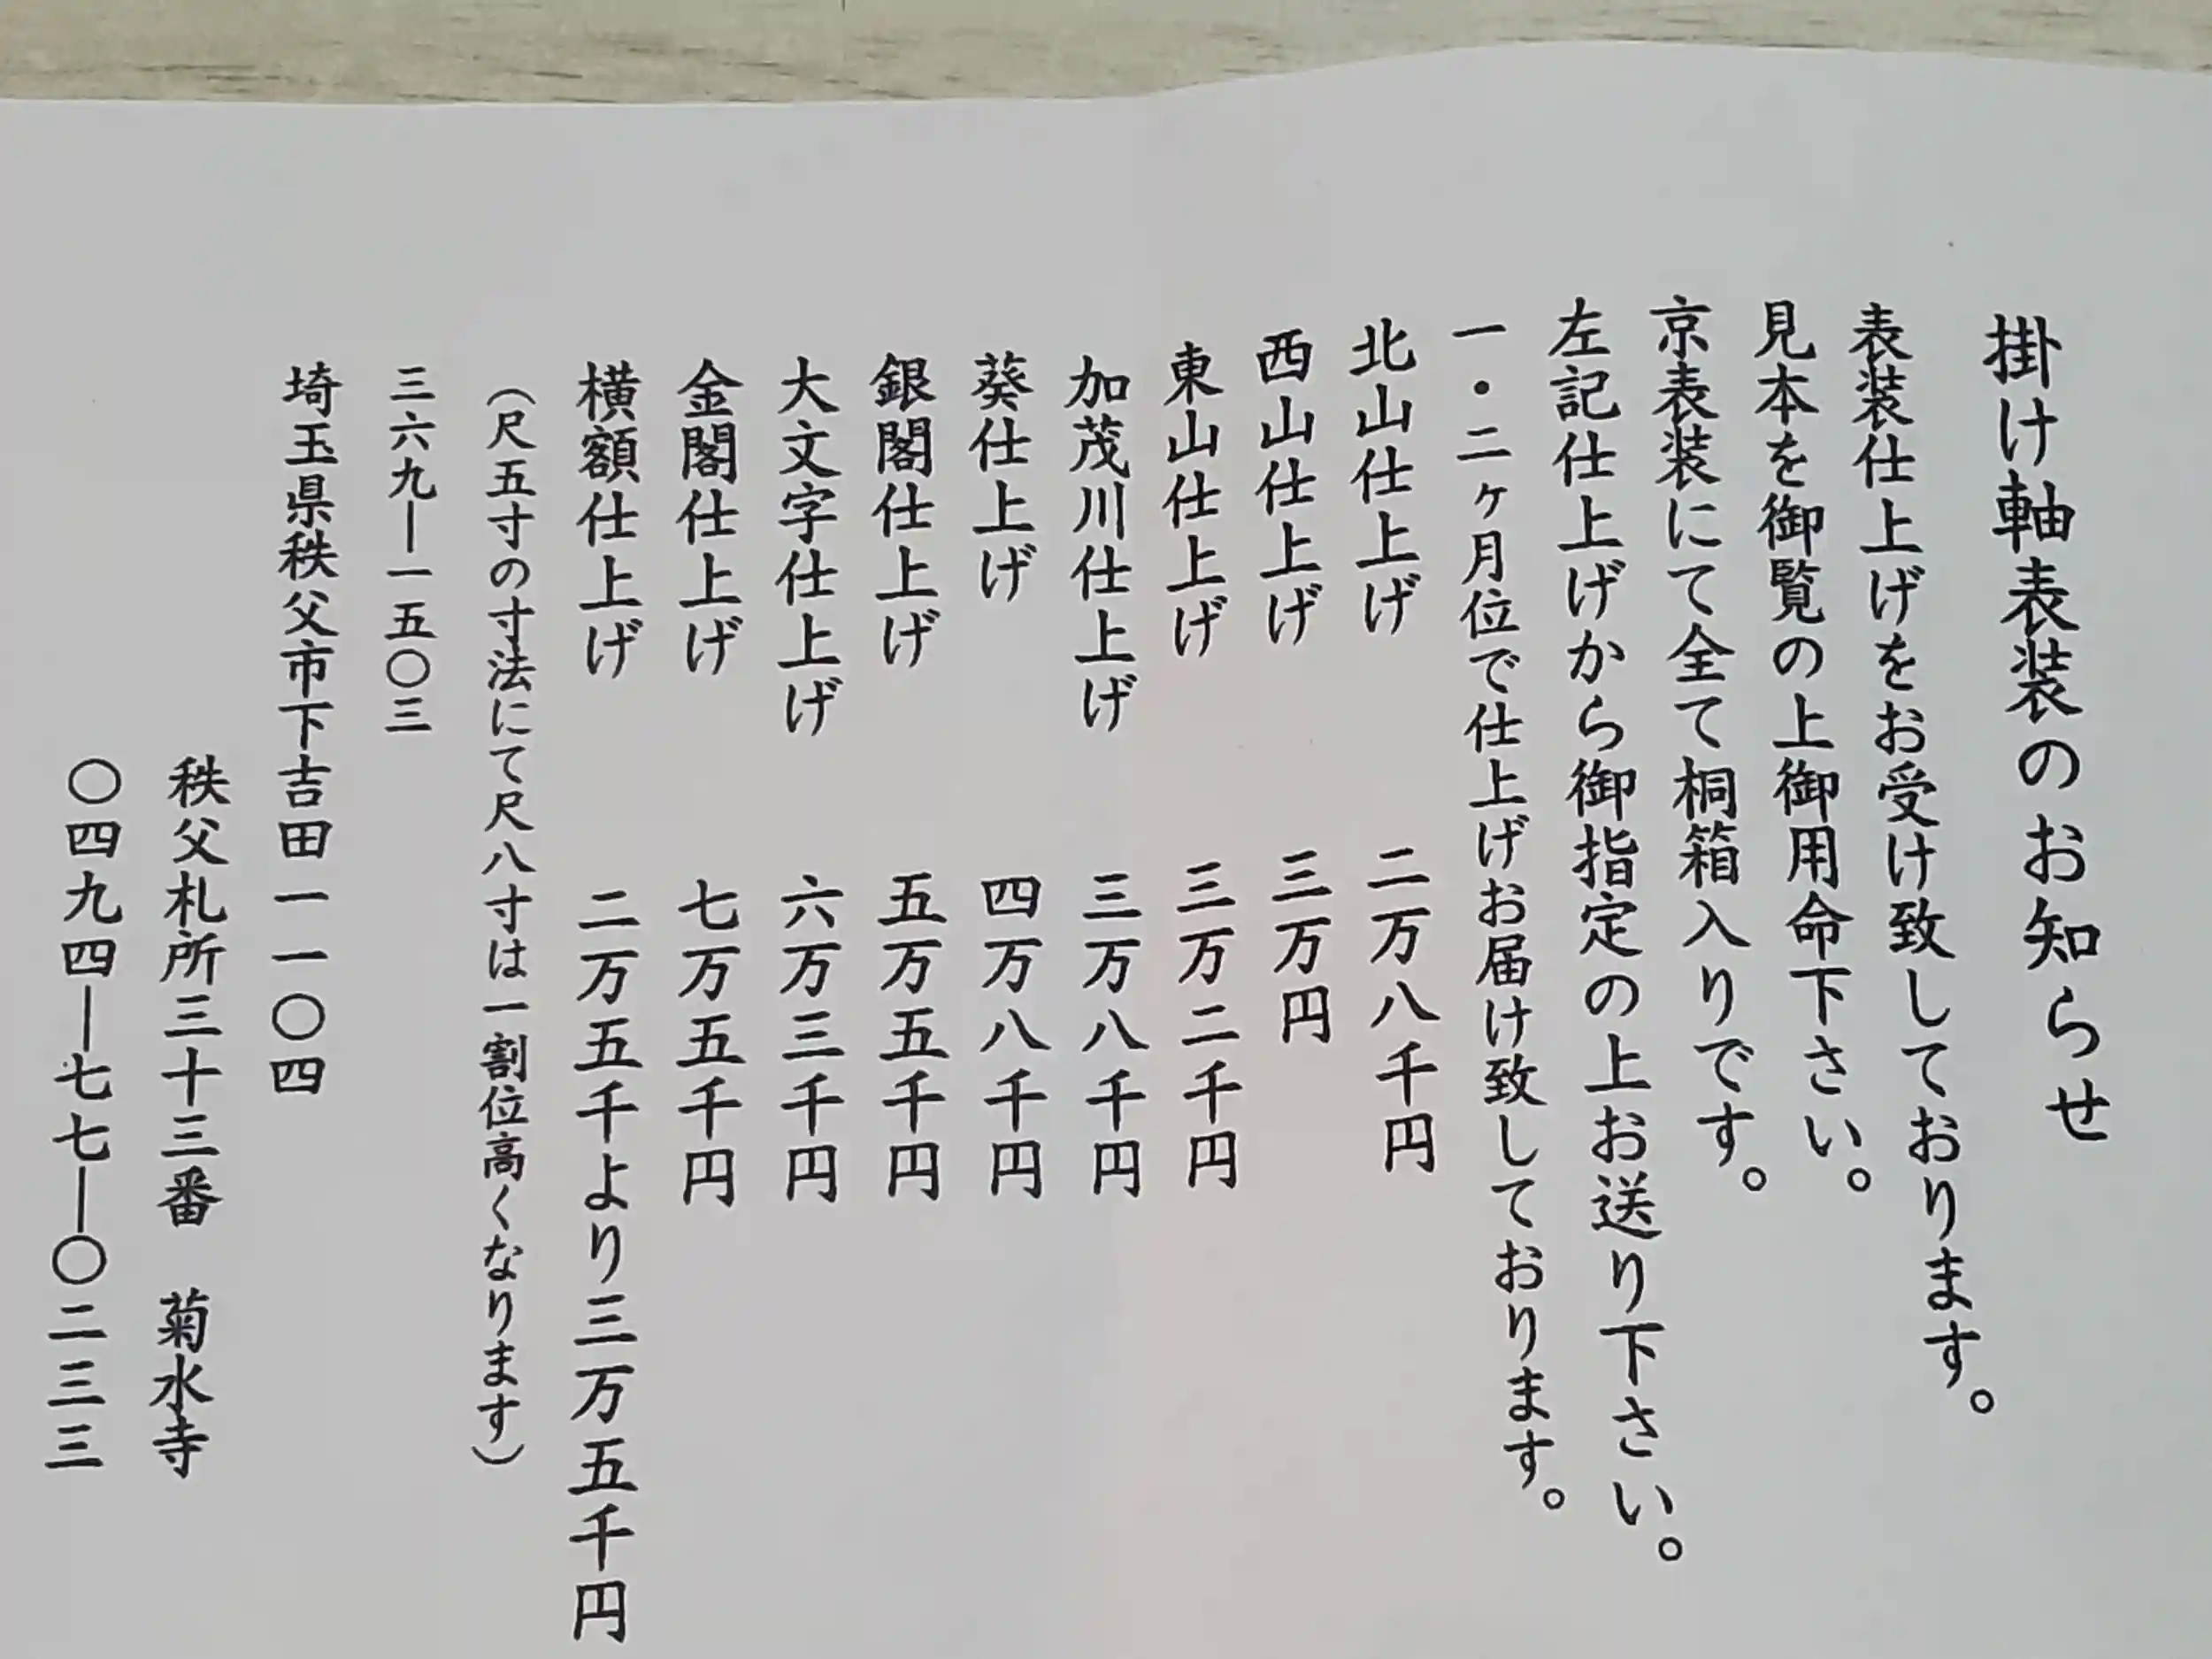 掛け軸表装のお知らせ
表装仕上げをお受け致しております。
見本を御覧の上御用命下さい。
京表装にて全て桐箱入りです。
左記仕上げから御指定の上お送り下さい。
一・二ヶ月位で仕上げお届け致しております。
北山仕上げ　二万八千円
西山仕上げ　三万円
東山仕上げ　三万二千円
加茂川仕上げ　三万八千円
葵仕上げ　四万八千円
銀閣仕上げ　五万五千円
大文字仕上げ　六万三千円
金閣仕上げ　七万五千円
横額仕上げ　二万五千より三万五千円
（尺五寸の寸法にて尺八寸は一割位高くなります）
三六九―一五〇三
埼玉県秩父市下吉田一一〇四
秩父札所三十三番　菊水寺
〇四九四―七七―〇二三三